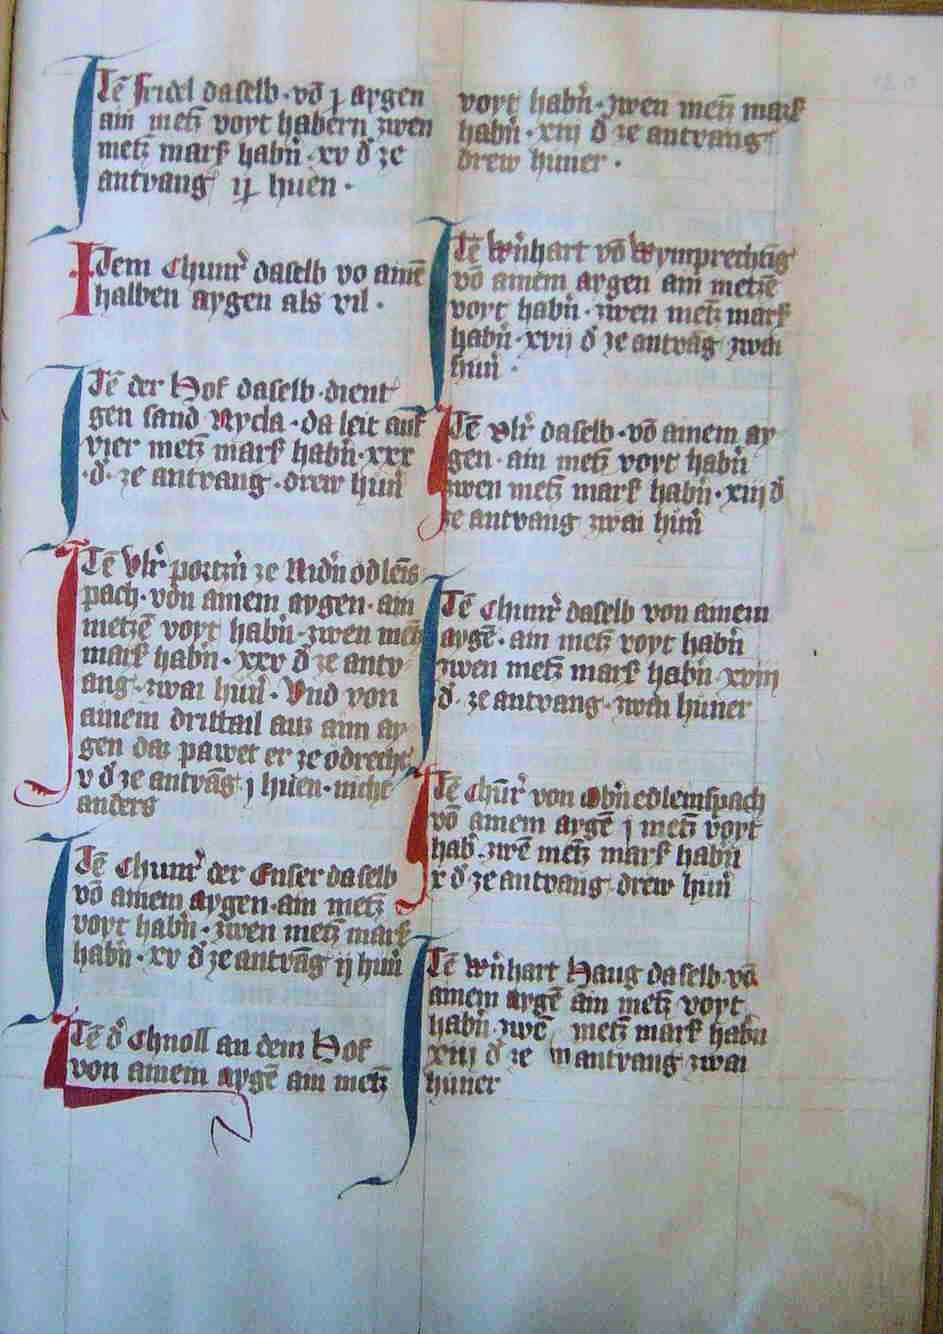 Itē fridel daselb · vō j aygen
ain metz voyt habern zwen
metz mark habn̄ · xv d̄ ze
antvang ij huen ·
Item Chunr̄ daselb vo aim̄e
halben aygen als vil ·
Itē der Hof daselb dient
gen sand Nycla · da leit auf
vier metz mark habn̄ · xxx
· d̄ · ze antvang · drew hun̄
Itē Vlr̄ portzn̄ ze Nidn̄ odleīs
pach · von ainem aygen · ain
metzē voyt habn̄ · zwen metz
mark habn̄ · xxv d̄ ze antv
ang · zwai hun̄ · Vnd von
ainem drittail auz aim ay
gen daz pawet er ze odrecht
v d̄ ze antvāg j huen · nicht
anders
Itē Chunr̄ der Enser daselb
vō ainem aygen · ain metz
voyt habn̄ · zwen metz mark
habn̄ · xv d̄ ze antvāg ij hun̄
Itē d̄ Chnoll an dem Hof
von ainem aygē ain metz
voyt habn̄ · zwen metz mark
habn̄ · xiij d̄ ze antvang
drew huner ·
Itē Wn̄hart vō Wymprechtīg
vō ainem aygen ain metzē
voyt habn̄ · zwen metz mark
habn̄ · xvij d̄ ze antvāg zwai
hun̄ ·
Itē Vlr̄ daselb · vō ainem ay
gen · ain metz voyt habn̄
zwen metz mark habn̄ · xiij d̄
ze antvang zwai hun̄
Itē Chunr̄ daselb von ainem
aygē · ain metz voyt habn̄
zwen metz mark habn̄ xviij
d̄ · ze antvang · zwen huner
Itē Chūr̄ von Obn̄edleinspach
vō ainem aygē j metz voyt
hab̄ · zwē metz mark habn̄
x d̄ ze antvang drew hun̄
Itē Wn̄hart Haug daselb · vō
ainem aygē ain metz voyt
habn̄ · zwē metz mark habn̄
xiij d̄ ze antvang zwai
huner